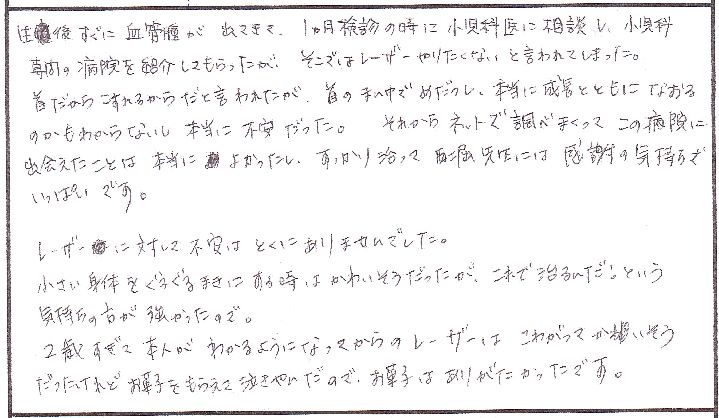 生後すぐに血管腫が出てきて、1ヵ月検診の時に小児科医に相談し、小児科
専門の病院を紹介してもらったが、そこではレーザーやりたくないと言われてしまった。
首だからこすれるからだと言われたが、首のまん中でめだつし、本当に成長とともになおる
のかもわからないし本当に不安だった。 それからネットで調べまくってこの病院に
出会えたことは本当によかったし、すっかり治って 先生には感謝の気持ちで
いっぱいです。
レーザーに対して不安はとくにありませんでした。
小さい身体をぐるぐるまきにする時はかわいそうだったが、これで治るんだ!という
気持ちの方が強かったので。
2歳すぎて本人がわかるようになってからのレーザーは こわがってかわいそう
だったけれどお菓子をもらえて泣きやんだので、お菓子はありがたかったです。